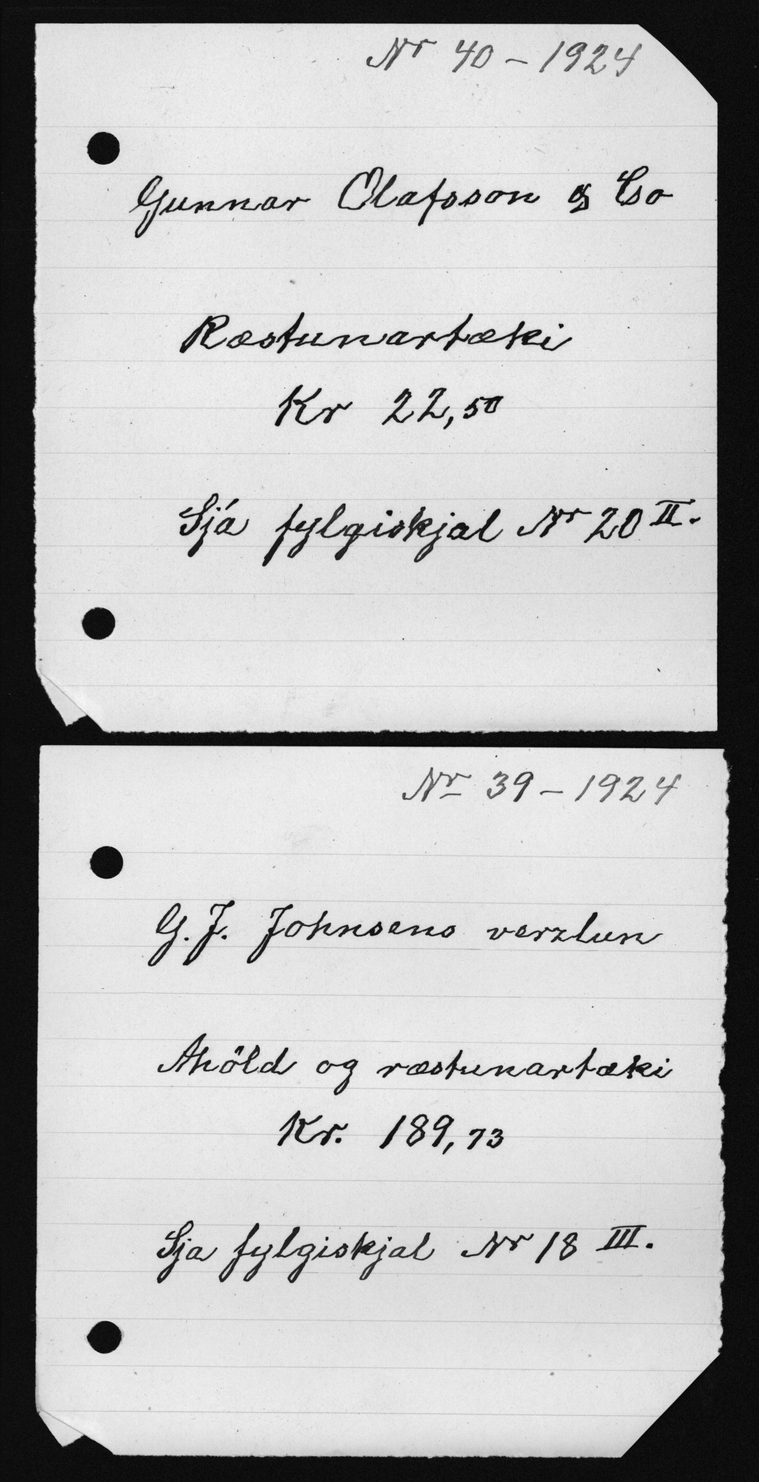 Nr 40 - 1924
Gunnar Olafsson & Co
Ræstunartæki
Kr 22,50
Sjá fylgiskjal Nr 20 II.
Nr 39 - 1924
G. J. Johnsens verzlun
Ahöld og ræstunartæki
Kr. 189,73
Sja fylgiskjal Nr 18 III.